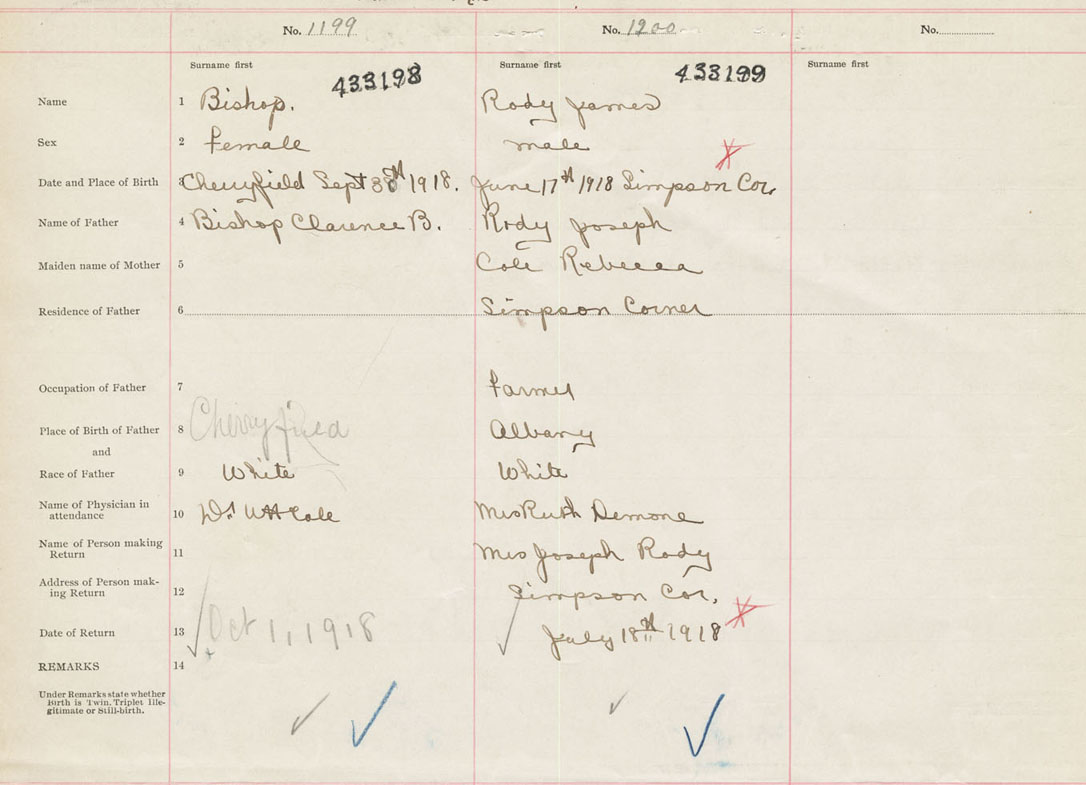 No. 1199 No. 1200 No.
Surname first 433198 Surname first 433199 Surname first
Name 1 Bishop. Rody James
Sex 2 Female male
Date and Place of Birth 3 Cherryfield Sept 28th 1918. June 17th 1918 Simpson Cor.
Name of Father 4 Bishop Clarence B. Rody Joseph
Maiden name of Mother 5 Cole Rebecca
Residence of Father 6 Simpson Corner
Occupation of Father 7 Farmer
Place of Birth of Father 8 Cherryfield Albany
and
Race of Father 9 White White
Name of Physician in
attendance 10 Dr. WH Cole Mrs Ruth Demone
Name of Person making
Return 11 Mrs Joseph Rody
Address of Person mak-
ing Return 12 Simpson Cor.
Date of Return 13 Oct 1, 1918 July 18th 1918
REMARKS 14
Under Remarks state whether
Birth is Twin. Triplet Ille-
gitimate or Still-birth.